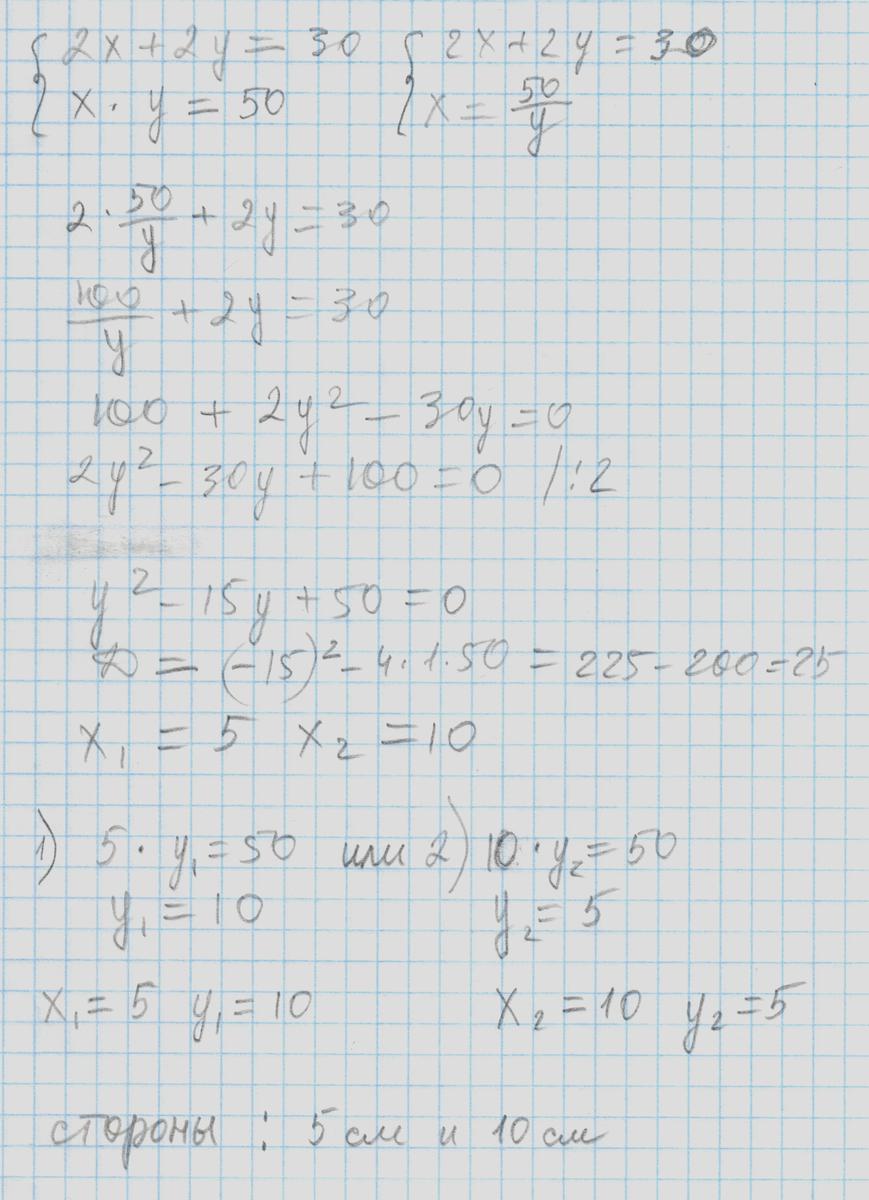 { 2x + 2y = 30 { 2x + 2y = 30
{ x · y = 50 { x = 50/y
2 · 50/y + 2y = 30
100/y + 2y = 30
100 + 2y² - 30y = 0
2y² - 30y + 100 = 0 /:2
y² - 15y + 50 = 0
D = (-15)² - 4·1·50 = 225 - 200 = 25
x₁ = 5 x₂ = 10
1) 5 · y₁ = 50 или 2) 10 · y₂ = 50
y₁ = 10 y₂ = 5
x₁ = 5 y₁ = 10 x₂ = 10 y₂ = 5
стороны : 5 см и 10 см